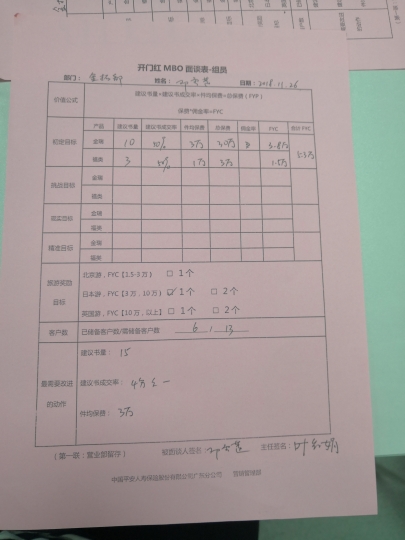 开门红 MBO 面谈表-组员
部门： 姓名： 日期：2018.11.26
价值公式 建议书量*建议书成交率=件均保费=总保费（FYP）
保费*佣金率=FYC
产品 建议书量 建议书成交率 件均保费 总保费 佣金率 FYC 合计 FYC
规定目标 金瑞 10 50% 3万 3.8万 5.3万
福类 3 50% 1万 3万 1.5万
挑战目标 金瑞
福类
现实目标 金瑞
福类
精准目标 金瑞
福类
旅游奖励目标
北京游，FYC【1.5-3万】 □ 1个
日本游，FYC【3万，10万】 ☑ 1个 □ 2个
英国游，FYC【10万，以上】 □ 1个 □ 2个
客户数 已储备客户数/需储备客户数 6 / 13
最需要改进的动作
建议书量： 15
建议书成交率： 4分之一
件均保费： 3万
（第一联：营业部留存） 被面谈人签名： 主任签名：
中国平安人寿保险股份有限公司广东分公司